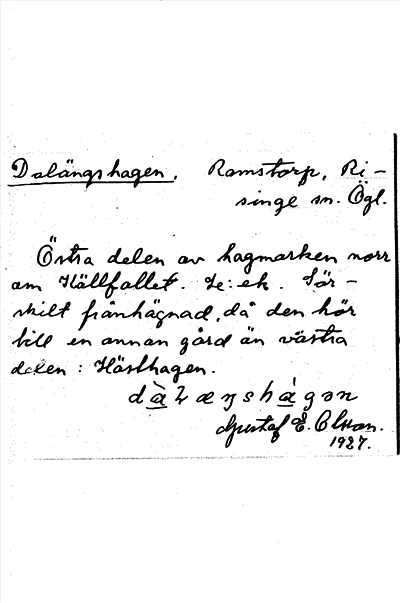 Dalängshagen. Ramstorp, Ri-
singe sn. Ögl.
Östra delen av hagmarken norr
om Hällfallet. Se: ek. Sär-
skilt frånhägnad, då den hör
till en annan gård än västra
delen: Hästhagen.
dàlæŋshágən
Gustaf E. Olsson.
1927.